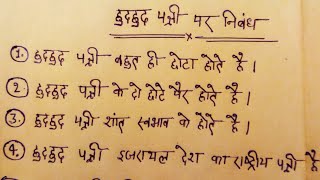 हुदहुद पक्षी पर निबंध
1. हुदहुद पक्षी बहुत ही छोटा होते है।
2. हुदहुद पक्षी के दो छोटे पैर होते है।
3. हुदहुद पक्षी शांत स्वभाव के होते है।
4. हुदहुद पक्षी इजरायल देश का राष्ट्रीय पक्षी है